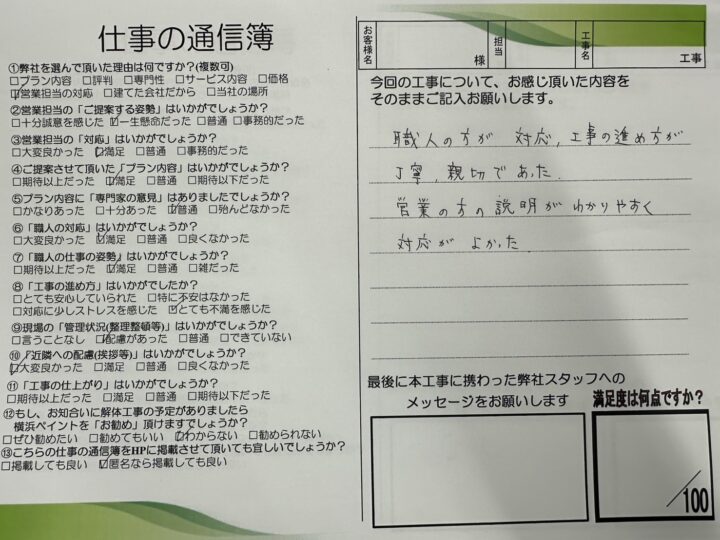 仕事の通信簿
①弊社を選んで頂いた理由は何ですか?(複数可)
□プラン内容 □評判 □専門性 □サービス内容 □価格
☑営業担当の対応 □建てた会社だから □当社の場所
②営業担当の「ご提案する姿勢」はいかがでしょうか?
□十分誠意を感じた ☑一生懸命だった □普通 □事務的だった
③営業担当の「対応」はいかがでしょうか?
□大変良かった ☑満足 □普通 □事務的だった
④ご提案させて頂いた「プラン内容」はいかがでしょうか?
□期待以上だった ☑満足 □普通 □期待以下だった
⑤プラン内容に「専門家の意見」はありましたでしょうか?
□かなりあった □十分あった ☑普通 □殆んどなかった
⑥「職人の対応」はいかがでしょうか?
□大変良かった ☑満足 □普通 □良くなかった
⑦「職人の仕事の姿勢」はいかがでしょうか?
□期待以上だった ☑満足 □普通 □雑だった
⑧「工事の進め方」はいかがでしたか?
□とても安心していられた □特に不安はなかった
□対応に少しストレスを感じた ☑とても不満を感じた
⑨現場の「管理状況(整理整頓等)」はいかがでしょうか?
□言うことなし ☑配慮があった □普通 □できていない
⑩「近隣への配慮(挨拶等)」はいかがでしょうか?
☑大変良かった □満足 □普通 □良くなかった
⑪「工事の仕上がり」はいかがでしょうか?
□期待以上だった □満足 □普通 □期待以下だった
⑫もし、お知合いに解体工事の予定がありましたら
横浜ペイントを「お勧め」頂けますでしょうか?
□ぜひ勧めたい □勧めてもいい ☑わからない □勧められない
⑬こちらの仕事の通信簿をHPに掲載させて頂いても宜しいでしょうか?
□掲載しても良い ☑匿名なら掲載しても良い
お客様名 様 担当 工事名 工事
今回の工事について、お感じ頂いた内容を
そのままご記入お願いします。
職人の方が 対応、工事の進め方が
丁寧、親切であった.
営業の方の説明がわかりやすく
対応が よかった
最後に本工事に携わった弊社スタッフへの
メッセージをお願いします
満足度は何点ですか?
/100